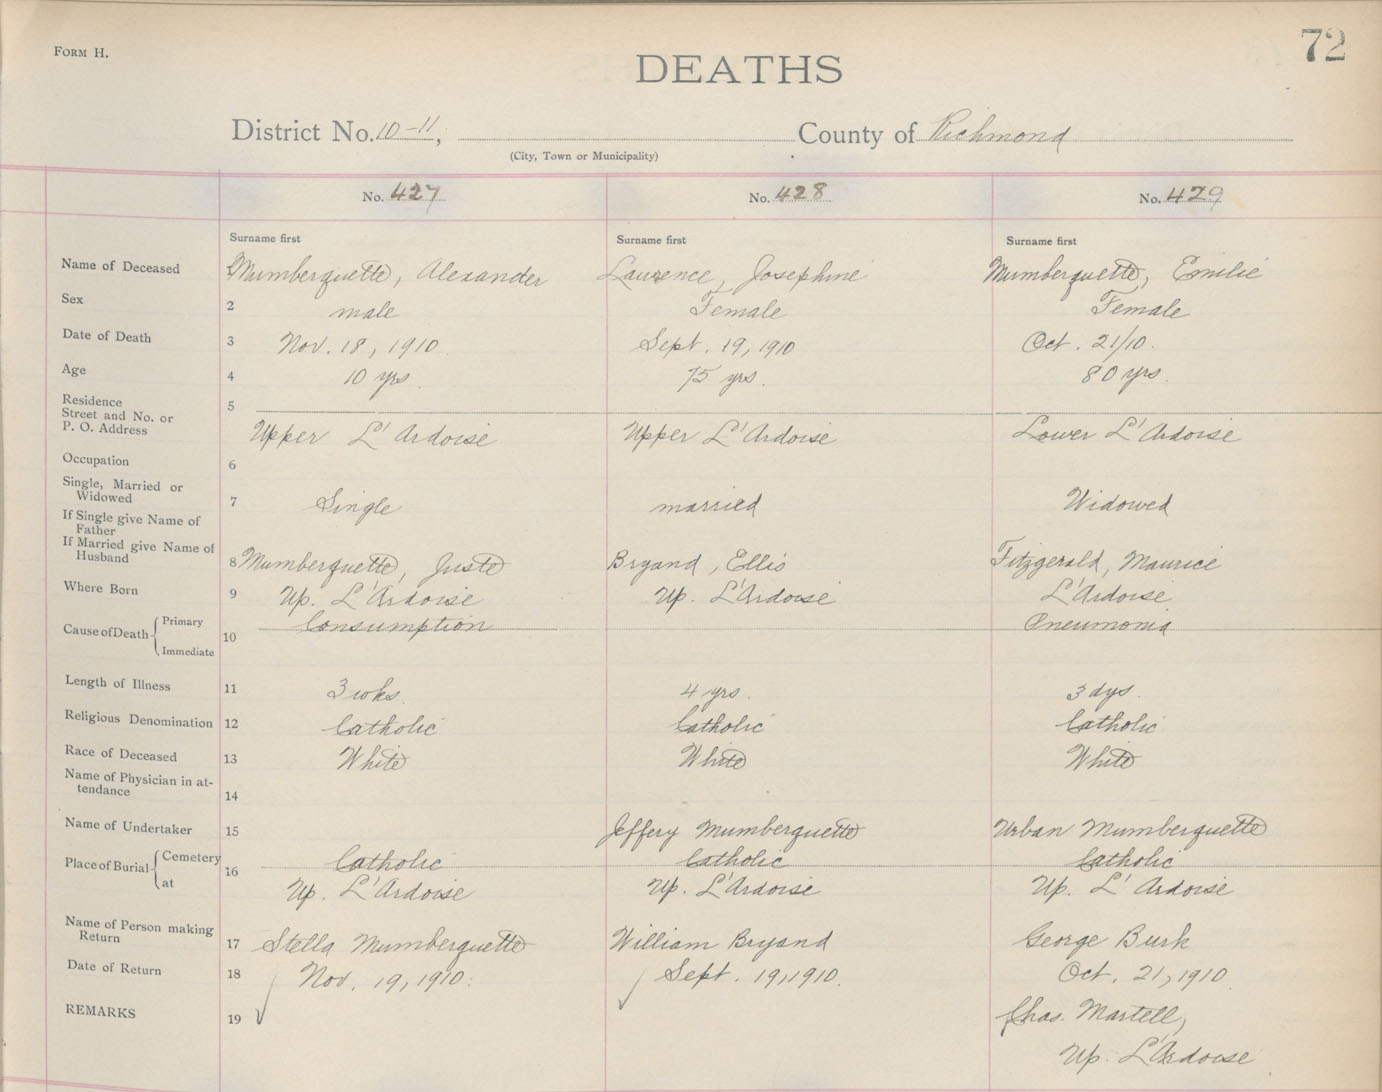 FORM H.
72
DEATHS
District No. 10-11, County of Richmond
(City, Town or Municipality)
No. 427 No. 428 No. 429
Surname first Surname first Surname first
Name of Deceased Mumberquette, Alexander Laurence, Josephine Mumberquette, Emilie
Sex 2 male Female Female
Date of Death 3 Nov. 18, 1910 Sept. 19, 1910 Oct. 21/10.
Age 4 10 yrs. 75 yrs. 80 yrs.
Residence 5
Street and No. or
P. O. Address Upper L'Ardoise Upper L'Ardoise Lower L'Ardoise
Occupation 6
Single, Married or
Widowed 7 Single married Widowed
If Single give Name of
Father
If Married give Name of
Husband 8 Mumberquette, Juste Bryand, Ellis Fitzgerald, Maurice
Where Born 9 Up. L'Ardoise Up. L'Ardoise L'Ardoise
Cause of Death { Primary Consumption Pneumonia
Immediate 10
Length of Illness 11 3 wks. 4 yrs. 3 dys.
Religious Denomination 12 Catholic Catholic Catholic
Race of Deceased 13 White White White
Name of Physician in at-
tendance 14
Name of Undertaker 15 Jeffery Mumberquette Urban Mumberquette
Place of Burial { Cemetery 16 Catholic Catholic Catholic
at Up. L'Ardoise Up. L'Ardoise Up. L'Ardoise
Name of Person making
Return 17 Stella Mumberquette William Bryand George Burk
Date of Return 18 Nov. 19, 1910. Sept. 19, 1910. Oct. 21, 1910
REMARKS 19 Chas. Martell,
Up. L'Ardoise